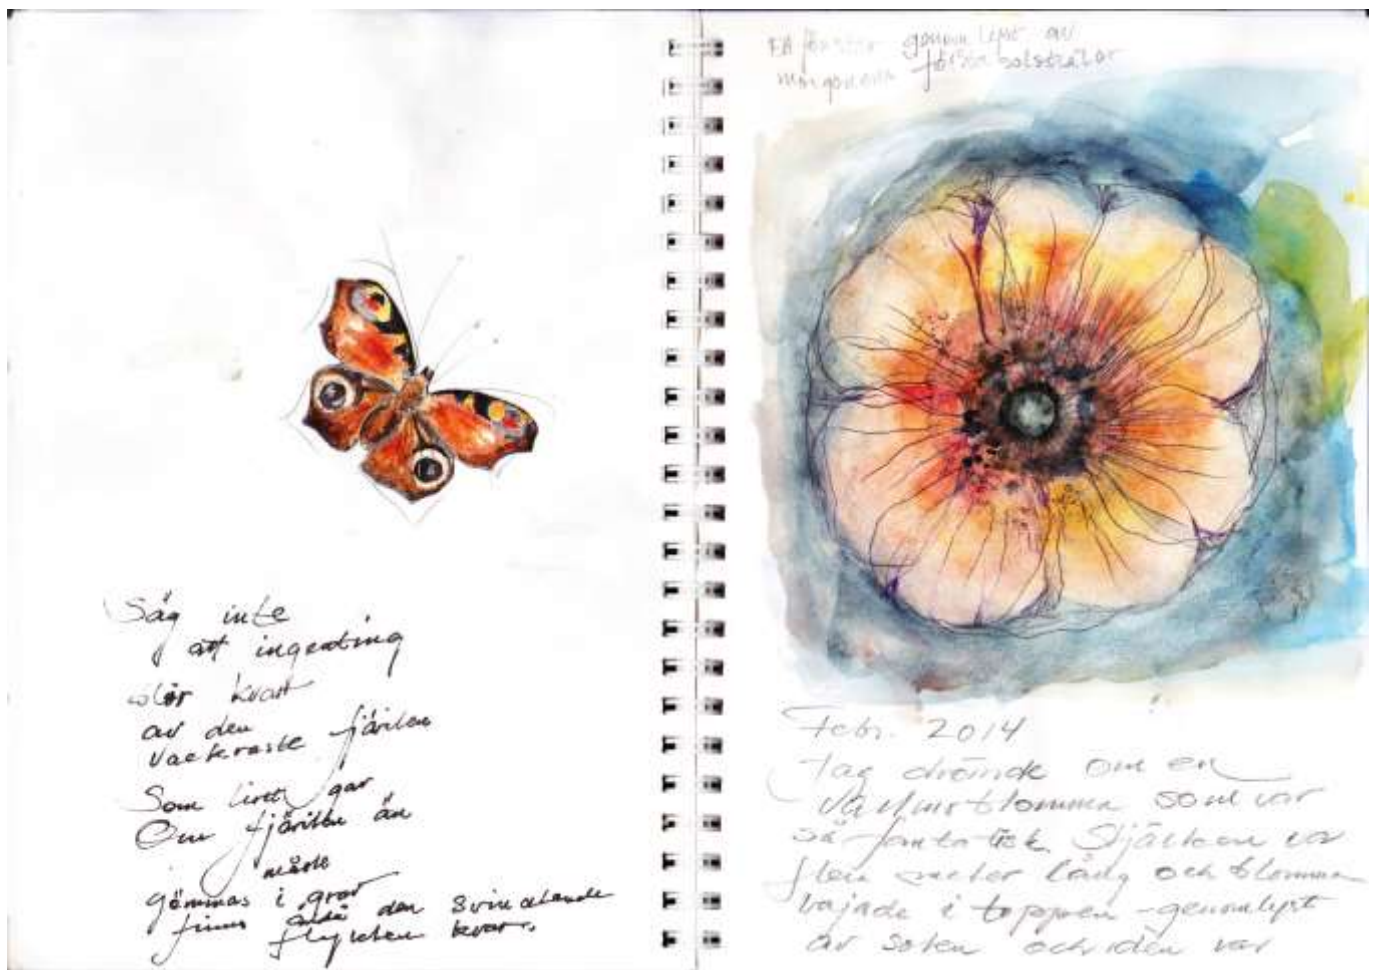 Säg inte
att ingenting
blir kvar
av den
vackraste fjärilen
Som livet gav
Om fjärilen än
måste
gömmas i grav
finns ändå den svindlande
flykten kvar.
Ett fönster genomlyst av
morgonens första solstrålar
Febr. 2014
Jag drömde om en
vallmoblomma som var
så fantastisk. Stjälken var
flera meter lång och blomman
vajade i toppen - genomlyst
av solen och iden var